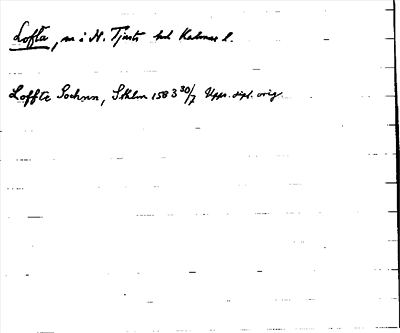 Lofta, sn i N. Tjusts hd Kalmar l.
Loffte Sochnn, Sthlm 1583 30/7 Upps. dipl. orig.